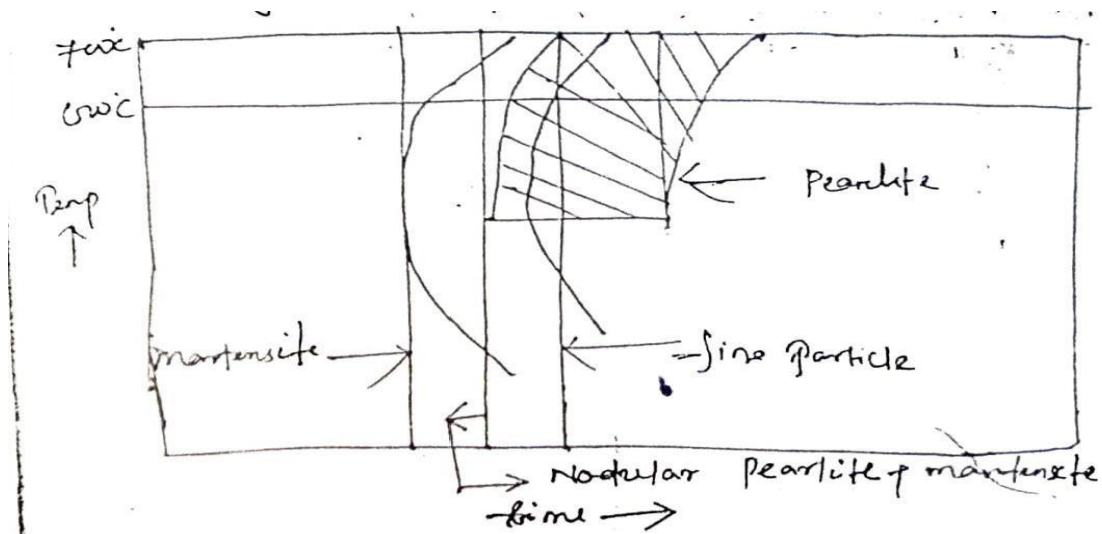 700°C
600°C
Temp
Pearlite
martensite
fine Particle
Nodular Pearlite & martensite
time